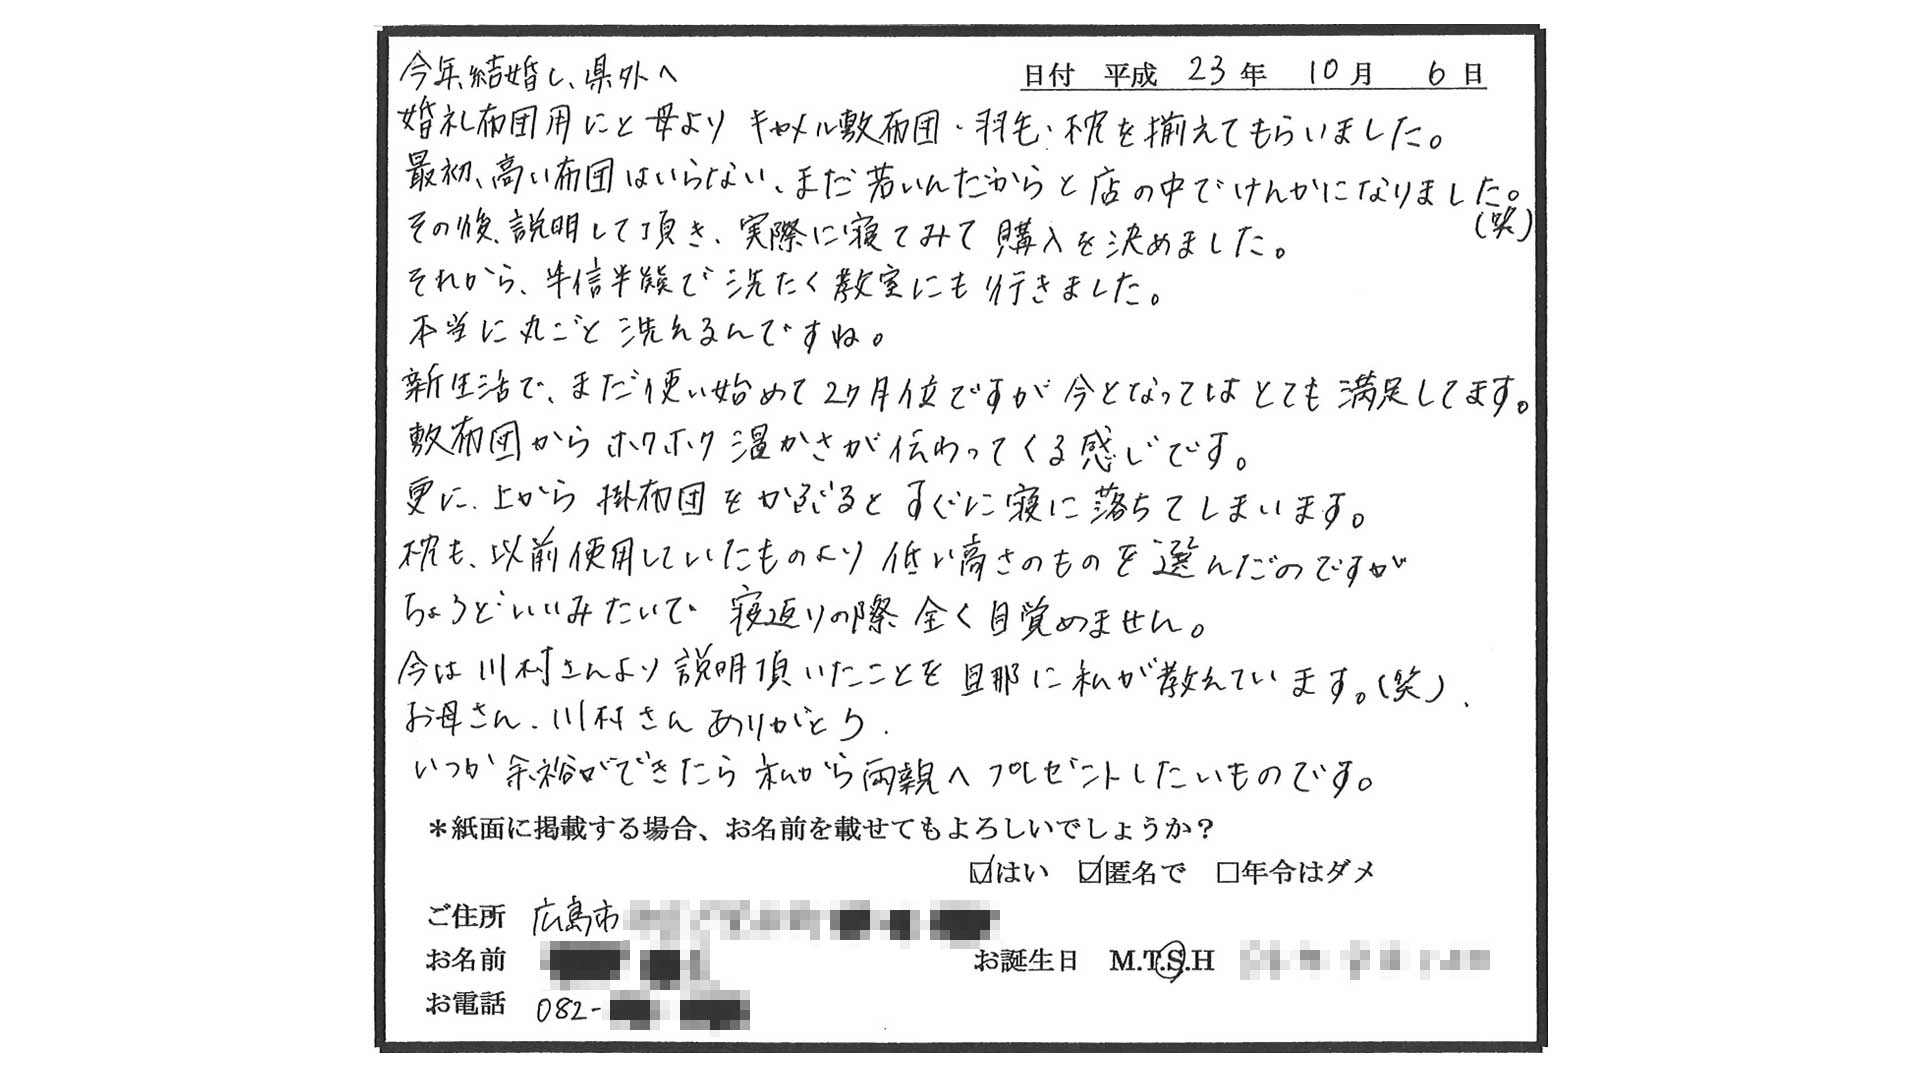 日付 平成 23年 10月 6日
今年、結婚し、県外へ
婚礼布団用にと母より キャメル敷布団・羽毛・枕を揃えてもらいました。
最初、高い布団はいらない、まだ若いんだからと店の中でけんかになりました。
(笑)
その後、説明して頂き、実際に寝てみて購入を決めました。
それから、半信半疑で洗たく教室にも行きました。
本当に丸ごと洗えるんですね。
新生活で、まだ使い始めて2ケ月位ですが今となってはとても満足してます。
敷布団からホクホク温かさが伝わってくる感じです。
更に、上から掛布団をかぶるとすぐに寝に落ちてしまいます。
枕も、以前使用していたものより低い高さのものを選んだのですが
ちょうどいいみたいで 寝返りの際全く目覚めません。
今は川村さんより説明頂いたことを旦那に私が教えています。(笑)
お母さん、川村さんありがとう.
いつか余裕ができたら私から両親へプレゼントしたいものです。
＊紙面に掲載する場合、お名前を載せてもよろしいでしょうか？
☑はい ☑匿名で □年令はダメ
ご住所 広島市
お名前 お誕生日 M.T.S.H
お電話 082-